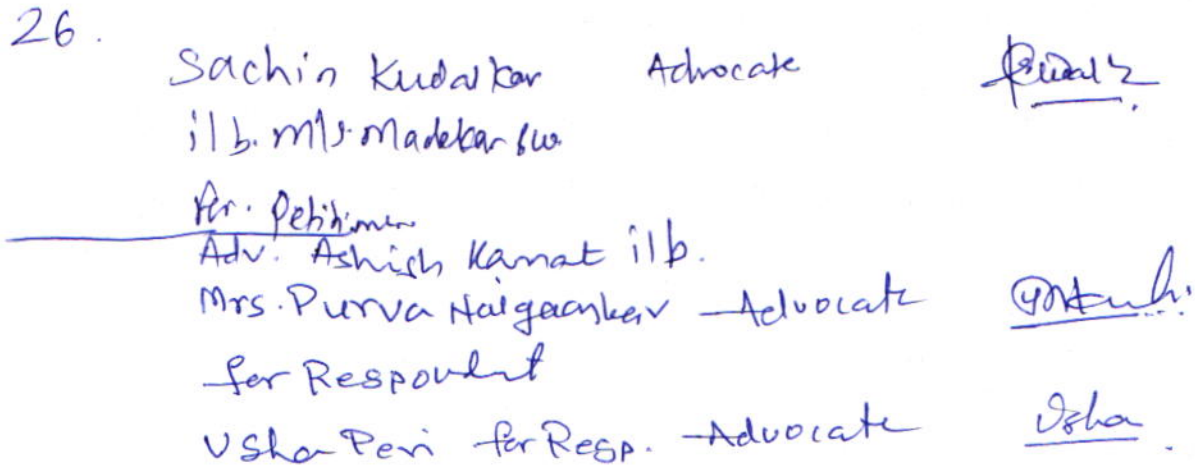 26.
Sachin Kudalkar Advocate
i/b. M/s. Madekar &
for. Petitioner
Adv. Ashish Kamat i/b.
Mrs. Purva Advocate
for Respondent
Usha Peri for Resp. Advocate Usha